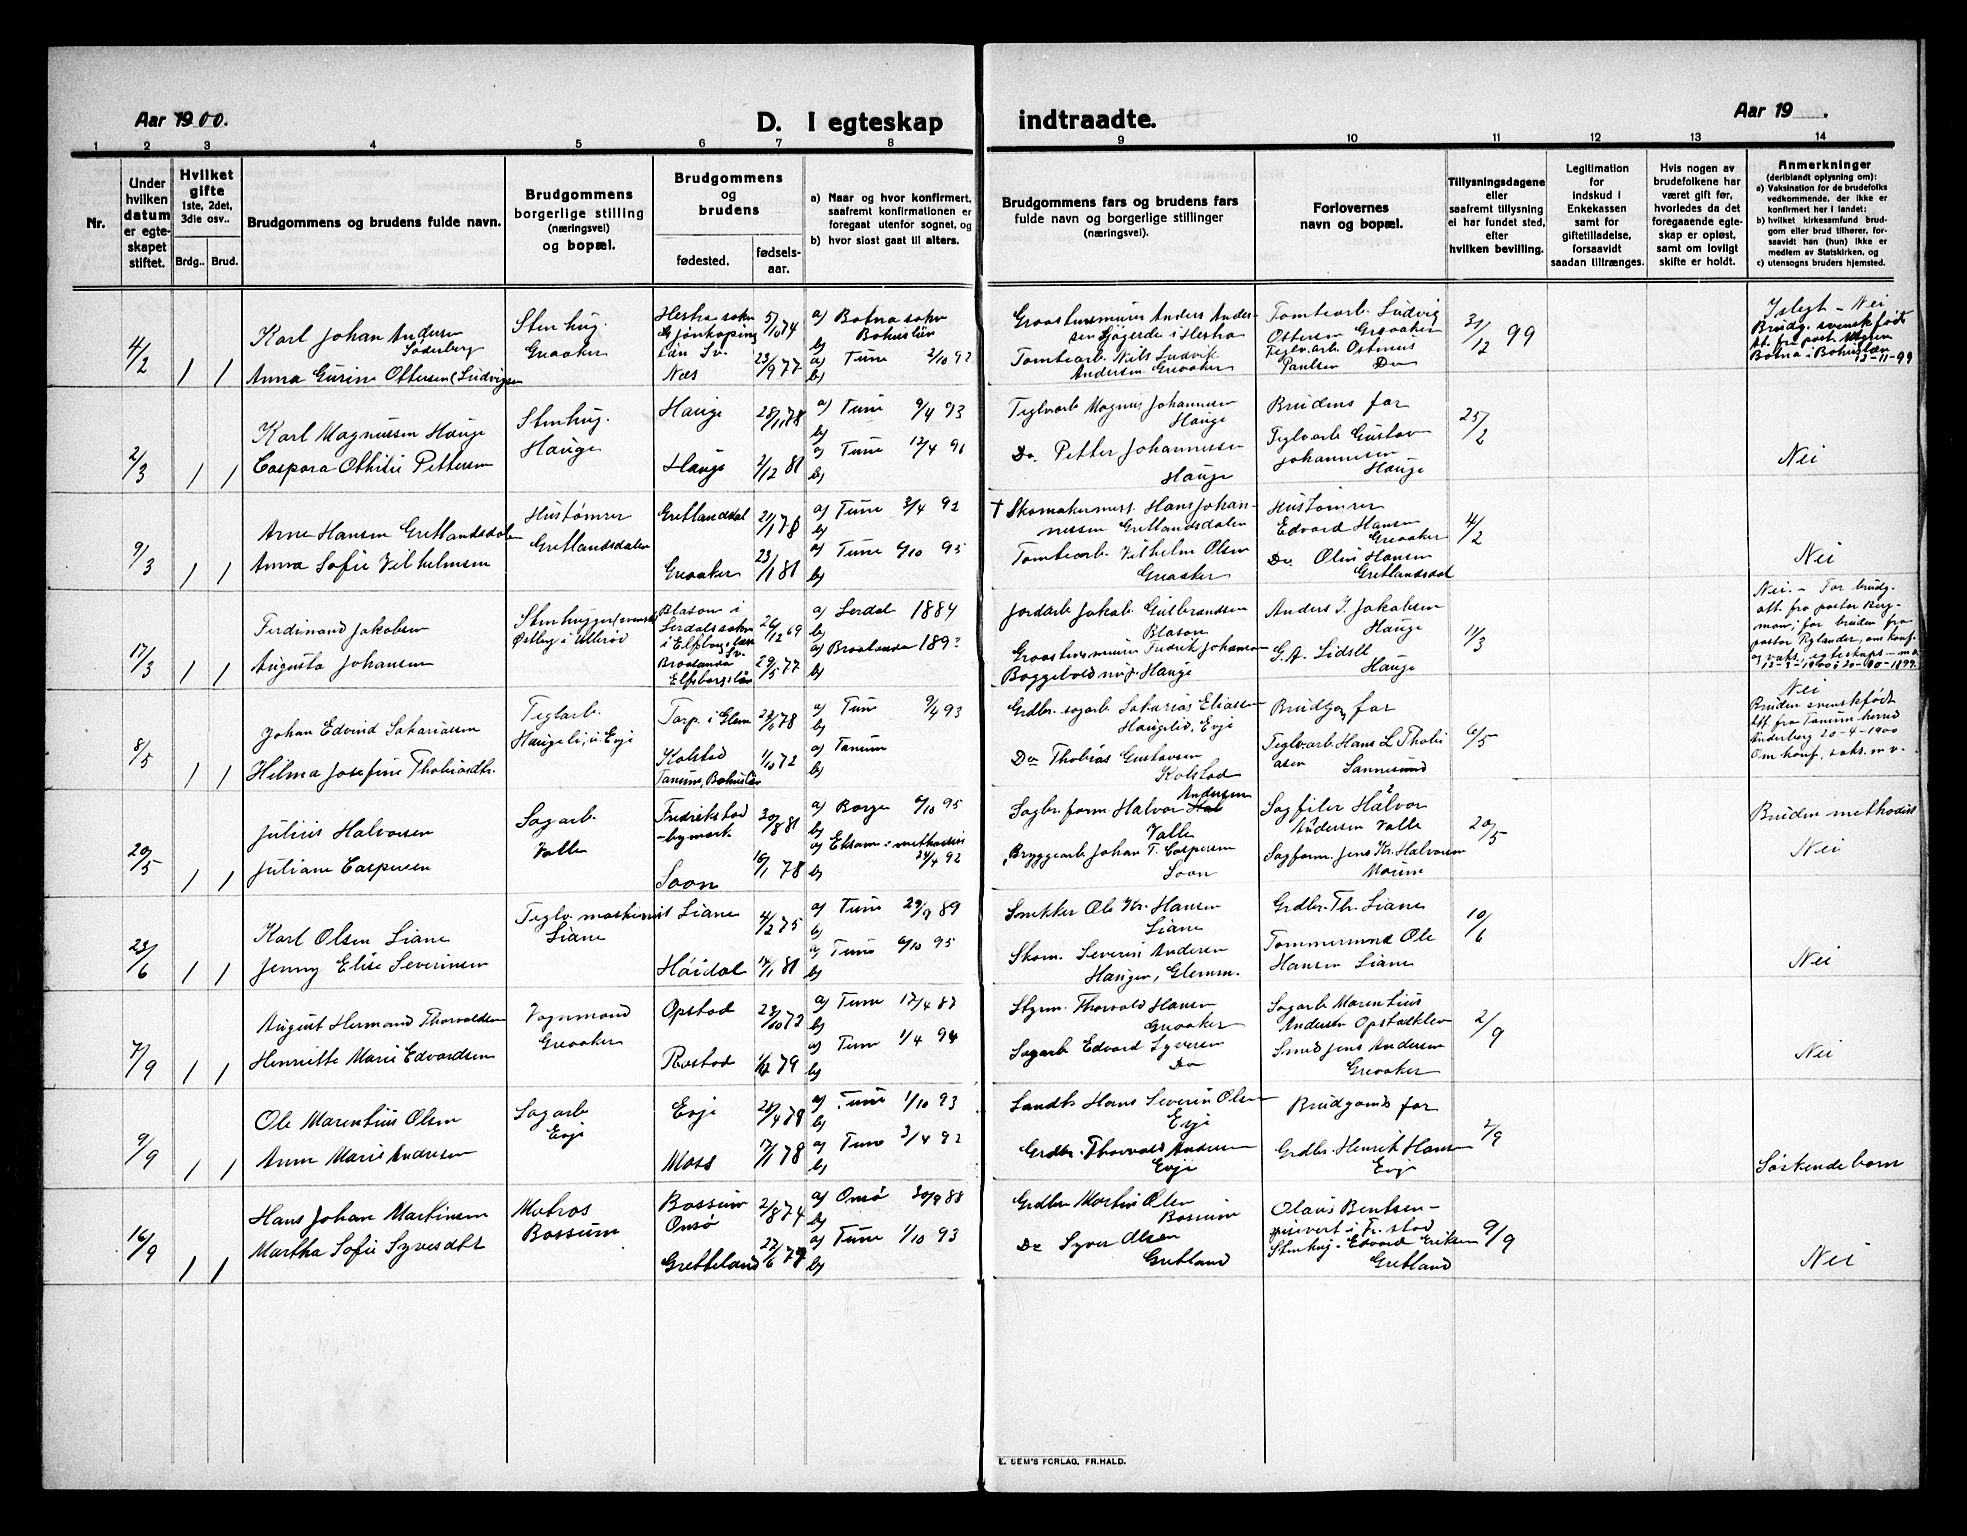 Aar 1900.
D. I egteskap
indtraadte.
Aar 19 .
1 2 3 4 5 6 7 8 9 10 11 12 13 14
Nr.
Under hvilken datum er egte-skapet stiftet.
Hvilket gifte 1ste, 2det, 3die osv..
Brdg.. Brud.
Brudgommens og brudens fulde navn.
Brudgommens borgerlige stilling (næringsvei) og bopæl.
Brudgommens og brudens
fødested.
fødsels-aar.
a) Naar og hvor konfirmert, saafremt konfirmationen er foregaat utenfor sognet, og
b) hvor sidst gaat til alters.
Brudgommens fars og brudens fars fulde navn og borgerlige stillinger (næringsvei).
Forlovernes navn og bopæl.
Tillysningsdagene eller saafremt tillysning ei har fundet sted, efter hvilken bevilling.
Legitimation for indskud i Enkekassen samt for giftetilladelse, forsaavidt saadan tiltrænges.
Hvis nogen av brudefolkene har været gift før, hvorledes da det foregaaende egte-skap er opløst, samt om lovligt skifte er holdt.
Anmerkninger (deriblandt oplysning om):
a) Vaksination for de brudefolks vedkommende, der ikke er konfirmert her i landet;
b) hvilket kirkesamfund brud-gom eller brud tilhører, for-saavidt han (hun) ikke er medlem av Statskirken, og
c) utensogns bruders hjemsted.
4/2 1 1
Karl Johan Andersen
Söderberg
Anna Gurine Ottersen (Ludvigsen
Stenhug.
Greaaker
5/10 74
Næs 23/9 77
a) Botna sokn
Bohuslän
b)
a) Tune 2/10 92
b)
Tomtearb. Nils Ludvik
Andersen Greaaker
Tomtearb. Ludvig
Ottersen Greaaker
Teglv.arb. Ostinus
Paulsen Do
31/12 99
Nei
13-11-99
2/3 1 1
Karl Magnussen Hauge
Caspara Othilie Pettersen
Stenhug.
Hauge
Hauge 28/11 78
Hauge 2/12 81
a) Tune 9/4 93
b)
a) Tune 12/4 96
b)
Teglvarb Magnus Johannesen
Hauge
Do. Petter Johannessen
Hauge
Brudens far
Teglvarb Gustav
Johannesen
Hauge
25/2
Nei
9/3 1 1
Arne Hansen Gretlandsdalen
Anna Sofie Vilhelmsen
Hustømrer
Gretlandsdalen
Gretlandsdal 21/1 78
Greaaker 23/1 81
a) Tune 3/4 92
b)
a) Tune 6/10 95
b)
† Skomakermest. Hans Johan-
nessen Gretlandsdalen
Tomtearb. Vilhelm Olsen
Greaaker
Hustømrer
Edvard Hansen
Greaaker
Do. Olini Hansen
Gretlandsdal
4/2
Nei
17/3 1 1
Ferdinand Jakobsen
Augusta Johansen
Østby i Ullerøy
26/12 69
29/5 77
a) Lerdal 1884
b)
a) Braalanda 189?
b)
Jordarb Jakob Gulbrandsen
Blason
Anders J. Jakobsen
Hauge
G. A. Lidsle
Hauge
11/3
Nei. - For brudg.
att. fra pastor Berg-
man; for bruden fra
pastor Rylander, om konf.
8/5 1 1
Johan Edvind Sakariassen
Helma Josefine Thobiasdtr.
Teglarb.
Haugeli, i Evje
Torp i Glem. 22/10 78
Kolstad
Tanums, Bohuslän 1/10 72
a) Tune 9/4 93
b)
a) Tanum
b)
Grdbr. sagarb Sakarias Eliassen
Haugelid, Evje
Do Thobias Gustavsen
Kolstad
Brudgoms far
Teglv.arb. Hans L Thobi
asen Sannesund
6/5
Nei
Bruden svenskfødt
Att fra Tanum herred
20-4-1900
Om konf, vaks. m.v.
20/5 1 1
Julius Halvorsen
Juliane Caspersen
Sagarb.
Valle
Fredrikstad
-bymark 30/8 81
Soon 16/1 78
a) Borge 6/10 95
b)
24/4 92
b)
Sagbr.form Halvor Andersen
Valle
Bryggearb Johan T. Caspersen
Soon
Sagfiler Halvor
Andersen Valle
Sagform. Jens Kr. Halvorsen
20/5
Bruden methodist
Nei
23/6 1 1
Karl Olsen Liane
Jenny Elise Severinsen
Teglv. maskinist
Liane
Liane 4/2 75
Høidal 14/1 81
a) Tune 29/9 89
b)
a) Tune 6/10 95
b)
Snekker Ole Kr. Hansen
Liane
Skom. Severin Andersen
Haugen, Glemm.
Grdbr. Th. Liane
Tømmermand Ole
Hansen Liane
10/6
Nei
7/9 1 1
August Hermand Thorvaldsen
Henriette Marie Edvardsen
Vognmand
Greaaker
Opstad 23/10 72
Rostad
79
a) Tune 17/4 87
b)
a) Tune 1/4 94
b)
Styrm. Thorvald Hansen
Greaaker
Sagarb Edvard Syversen
Do
Sagarb Marentius
Andersen Opstadklev
Smed Jens Andersen
Greaaker
2/9
Nei
9/9 1 1
Ole Marentius Olsen
Anne Marie Andersen
Sagarb
Evje
Evje 28/4 78
Moss 17/11 78
a) Tune 1/10 93
b)
a) Tune 3/4 92
b)
Landbr. Hans Severin Olsen
Evje
Grdbr. Thorvald Andersen
Evje
Brudgoms far
Grdbr. Henrik Hansen
Evje
2/9
Søskendebarn
16/9 1 1
Hans Johan Martinsen
Martha Sofie Syvesdtr
Matros
Bossum
Bossum
Onsø 2/8 74
Gretteland
a) Onsø 30/9 88
b)
a) Tune 1/10 93
b)
Grdbr Martin Olsen
Bossum
Do Syver Olsen
Gretland
Olaus Bentsen -
i Fr.stad
Stenhug. Edvard Eriksen
Gretland
9/9
Nei
E. SEM'S FORLAG, FR.HALD.